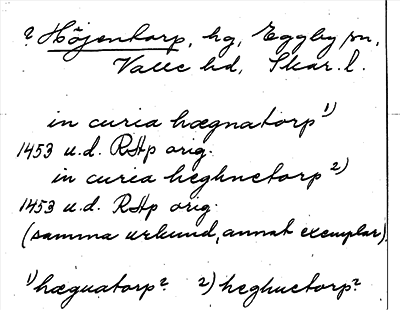 ? Höjentorp, hg, Eggby sn,
Valle hd, Skar. l.
in curia hægnatorp 1)
1453 u.d. RAp orig.
in curia heghnetorp 2)
1453 u.d. RAp orig.
(samma urkund, annat exemplar).
1) hæguatorp? 2) heghuetorp?